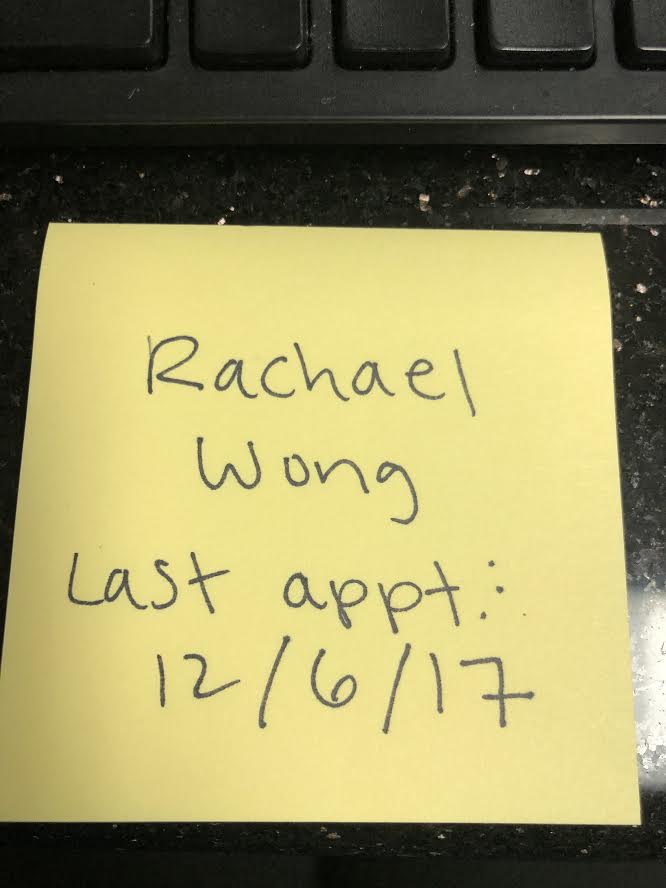 Rachael
Wong
Last appt.:
12/6/17